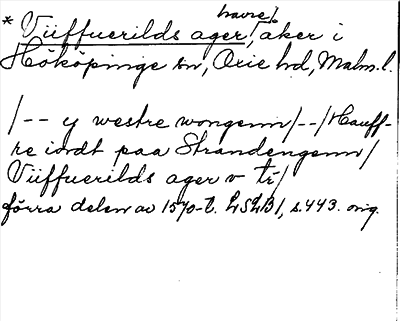 havre/
* Viiffuerilds ager, åker i
Hököpinge sn, Oxie hd, Malm.l.
/-- y westre wongenn/--/Hauff-
re iordt paa Strandengenn/
Viiffuerilds ager v tr/
förra delen av 1570-t. LSLB1, s.443. orig.